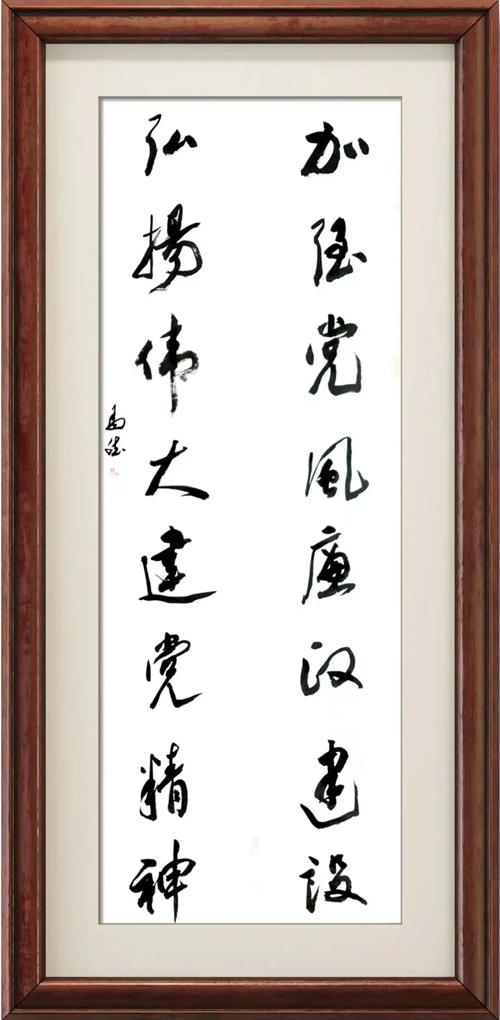 加强党風廉政建設
弘揚伟大建党精神